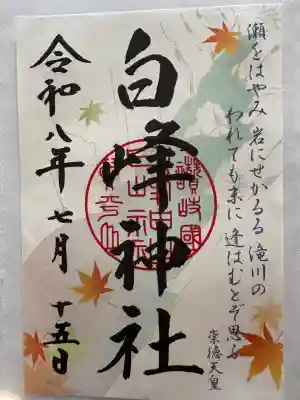 瀬をはやみ 岩にせかるる 滝川の
われても末に 逢はむとぞ思ふ
崇徳天皇
白峰神社
讃岐國
令和八年 七月 十五日